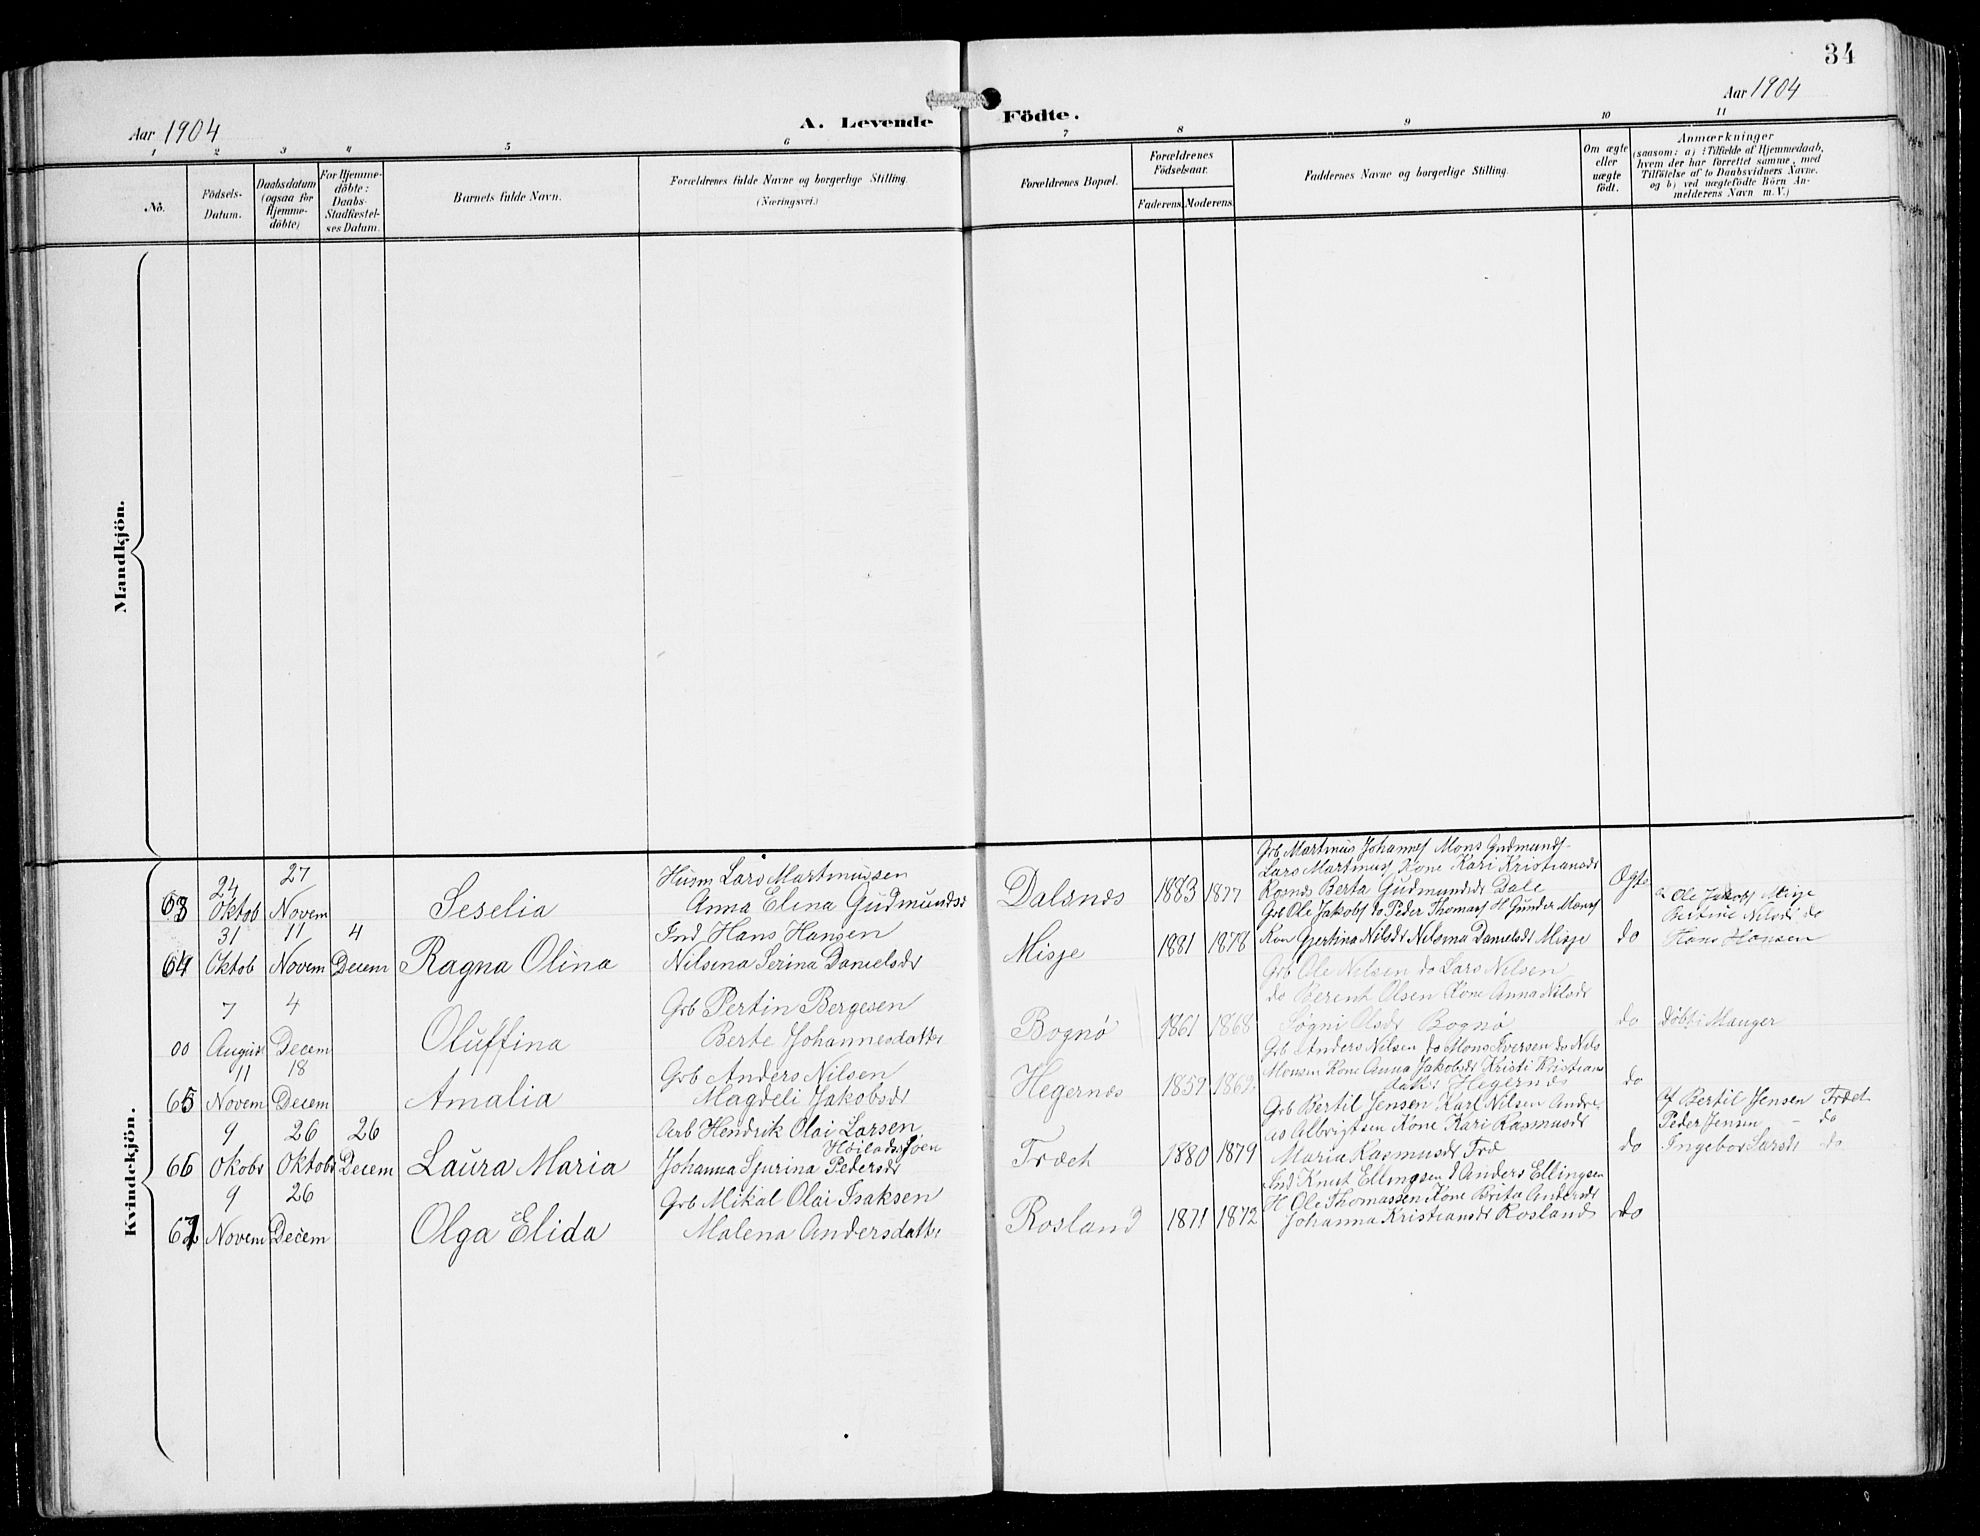 34
Aar 1904
A. Levende Födte.
Aar 1904
1 2 3 4 5 6 7 8 9 10 11
No.
Födsels-
Datum.
Daabsdatum
(ogsaa for
Hjemme-
döbte)
For Hjemme-
döbte:
Daabs-
Stadfæstel-
ses Datum.
Barnets fulde Navn.
Forældrenes fulde Navne og borgerlige Stilling.
(Næringsvei.)
Forældrenes Bopæl.
Forældrenes
Födselsaar.
Faderens. Moderens.
Faddernes Navne og borgerlige Stilling.
Om ægte
eller
uægte
födt.
Anmærkninger
(saasom: a) i Tilfælde af Hjemmedaab,
hvem der har forrettet samme, med
Tilföielse af to Daabsvidners Navne.
og b) ved uægtefödte Börn An-
melderens Navn m. V.)
Mandkjön.
Kvindekjön.
63
24
Oktob
27
Novem
Seselia
Husm Lars Martinussen
Anna Elina Gudmundsd
Dalsnes
1883
1877
Grb Martinus Johannes Mons Gudmunds
Lars Martinus Kone Kari Kristiansdr
Rosnes Berta Gudmundsdr Dale
Ogte
64
31
Oktob
11
Novem
4
Decem
Ragna Olina
Ind Hans Hansen
Nilsena Serina Danielsdr
Misje
1881
1878
Grb Ole Jakobs do Peder Thomass H Gunder Mons
Kon Gjertina Nilsdr Nilsina Danielsdr Misje
do
a Ole Jakobs Misje
Bertine Nilsdr do
Hans Hansen
00
7
August
4
Decem
Oluffina
Grb Pertin Bergesen
Berte Johannesdatter
Bognø
1861
1868
Grb Ole Nilsen do Lars Nilsen
do Berent Olsen Kone Anna Nilsdr
Søgni Olsdr Bognø
do
döbt i Manger
65
11
Novem
18
Decem
Amalia
Grb Anders Nilsen
Magdeli Jakobsdr
Hegernes
1859
1862
Grb Anders Nilsen do Mons Iversen do Nils
Monsen Kone Anna Jakobsdr Kristi Kristians
datr Hegernes
do
66
9
Okobr
26
Oktobr
26
Decem
Laura Maria
Arb Hendrik Olai Larsen
Høilandssjøen
Johanna Sjurina Pedersdr
Træet
1880
1879
Grb Bertil Jensen Karl Nilsen Andre
as Albrigtsen Kone Kari Rasmusdr
Maria Rasmusdr Træ
do
af Bertil Jensen Træet
Peder Jensen - do
Ingebor Larsdr do
67
9
Novem
26
Decem
Olga Elida
Grb Mikal Olai Isaksen
Malena Andersdatter
Rosland
1871
1872
Ind Knut Ellingsen d Anders Ellingsen
H Ole Thomassen Kone Brita Andersdr
Johanna Kristiansdr Rosland
do